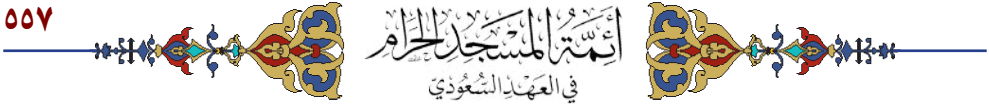 ٥٥٧
أَئِمَّةُ المَسْجِدِ الحَرَامِ
في العَهْدِ السُّعُودِيّ